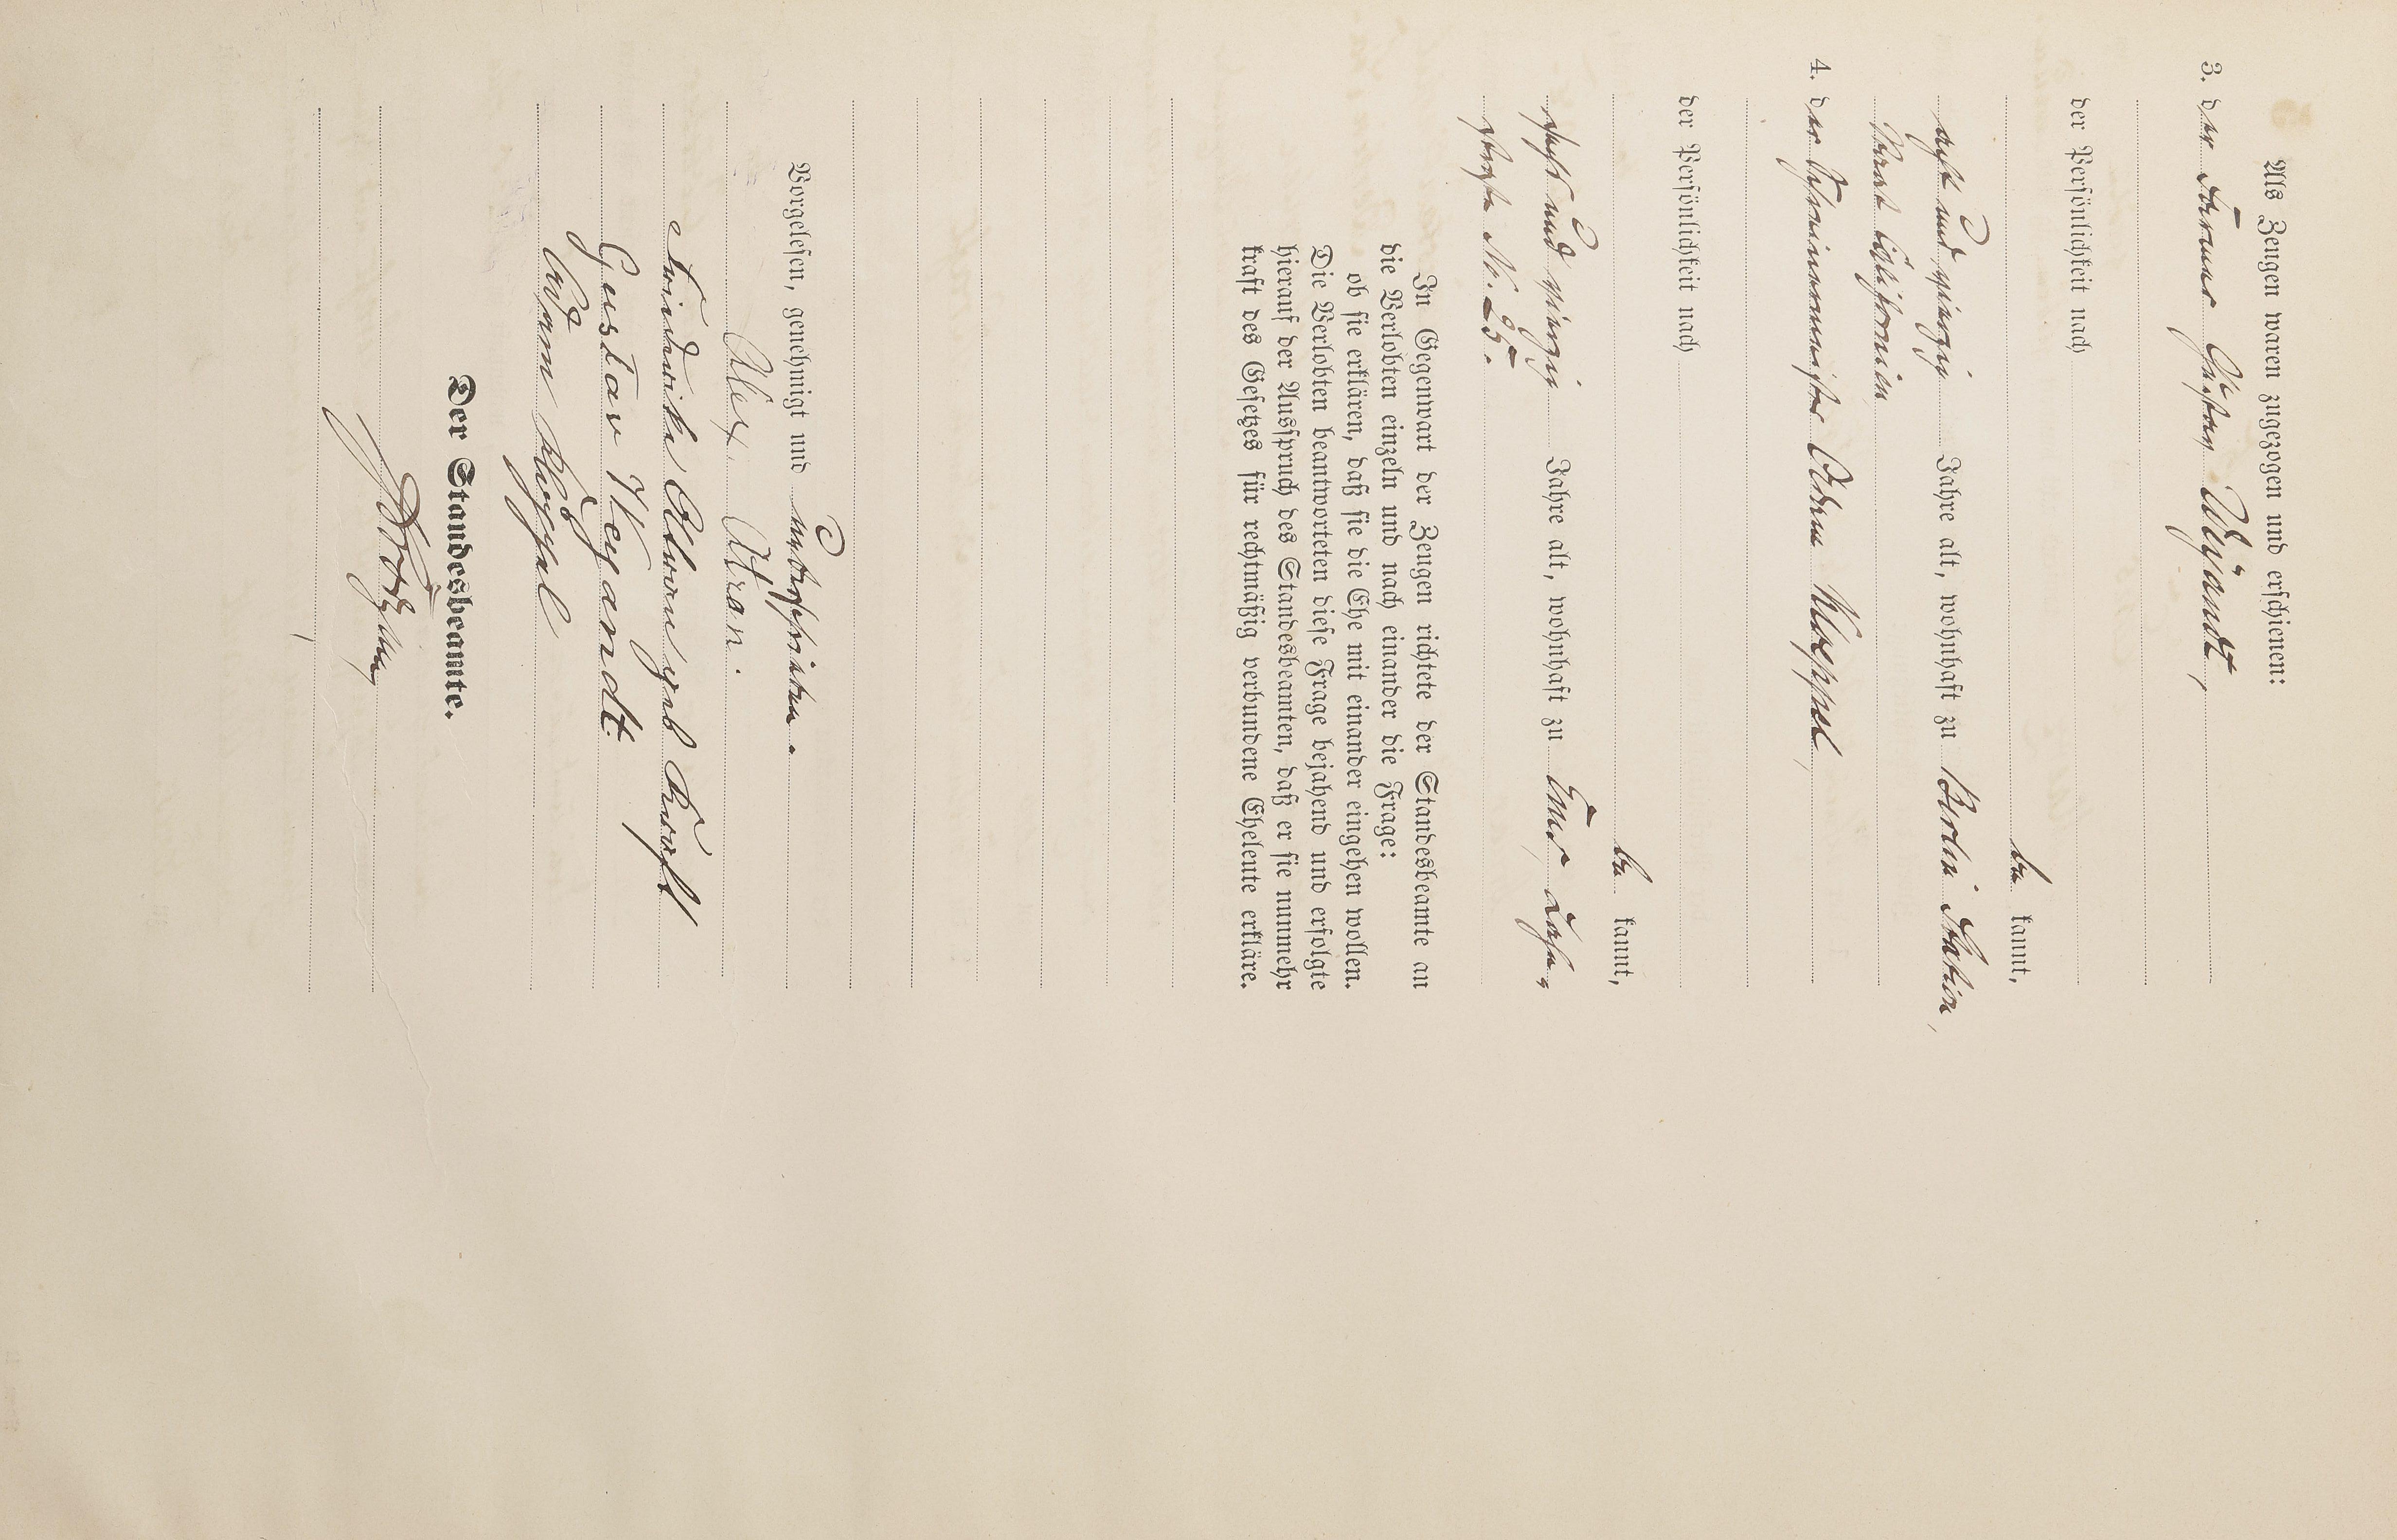 Als Zeugen waren zugezogen und erschienen:
3. der Farmer Gustav Weyandt,
der Persönlichkeit nach
be kannt,
acht und vierzig Jahre alt, wohnhaft zu Berlin Station,
Staat Californien
4. der Schreinermeister Adam Kloeppel,
der Persönlichkeit nach
be kannt,
sechs und vierzig Jahre alt, wohnhaft zu Ems, Lahn-
straße No. 25.
In Gegenwart der Zeugen richtete der Standesbeamte an
die Verlobten einzeln und nach einander die Frage:
ob sie erklären, daß sie die Ehe mit einander eingehen wollen.
Die Verlobten beantworteten diese Frage bejahend und erfolgte
hierauf der Ausspruch des Standesbeamten, daß er sie nunmehr
kraft des Gesetzes für rechtmäßig verbundene Eheleute erkläre.
Vorgelesen, genehmigt und unterschrieben.
Alex Atran.
geb
Gustav Weyandt
Adam Klöppel
Der Standesbeamte.